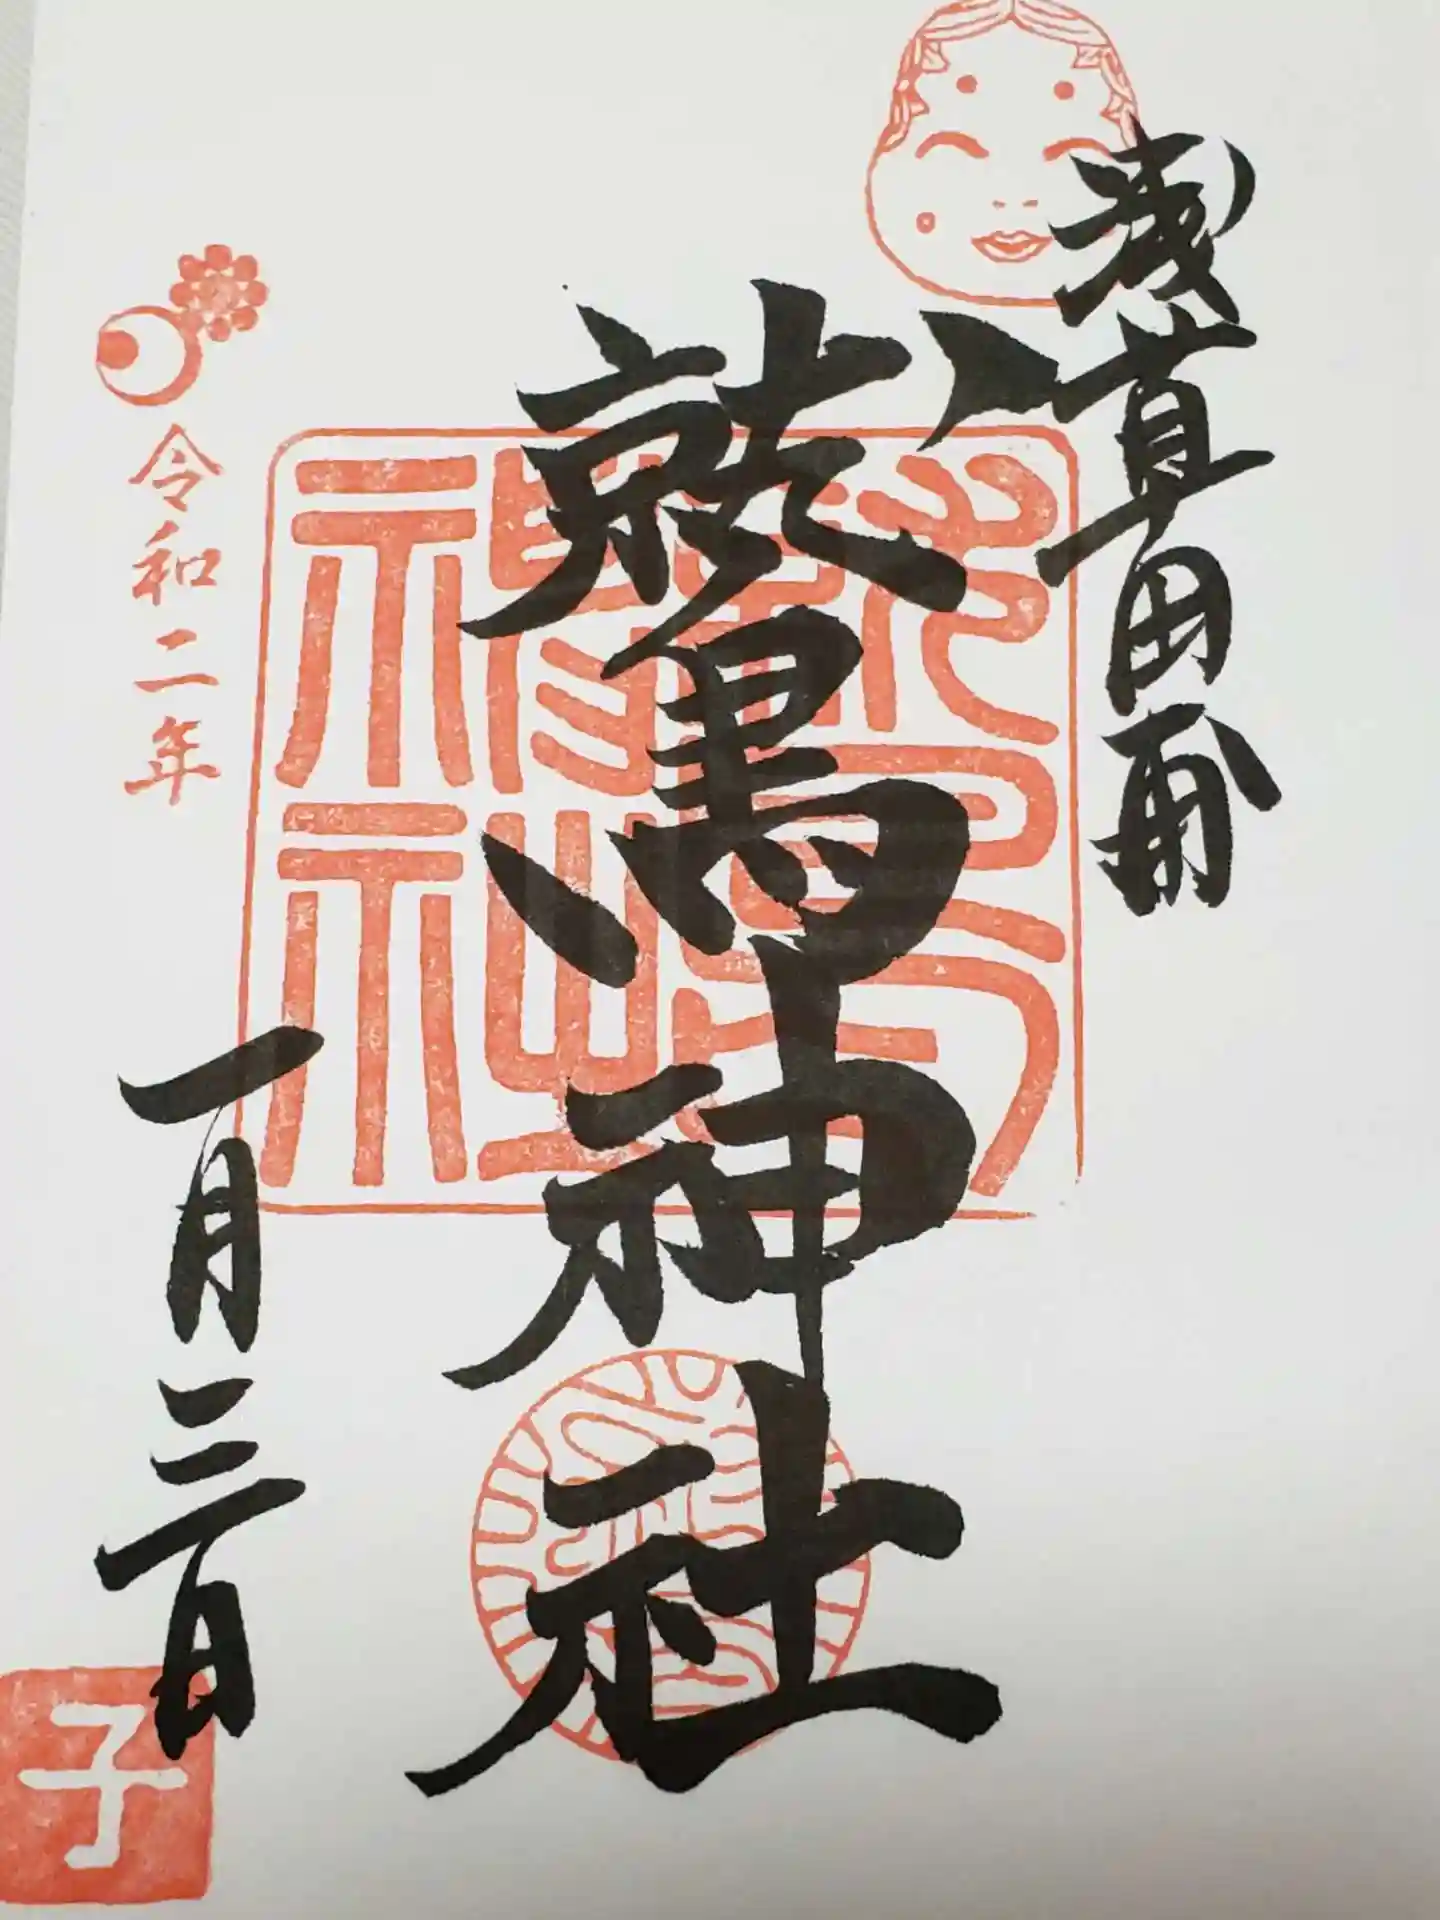 浅草田甫
鷲神社
鷲神社
令和二年
一月三日
子